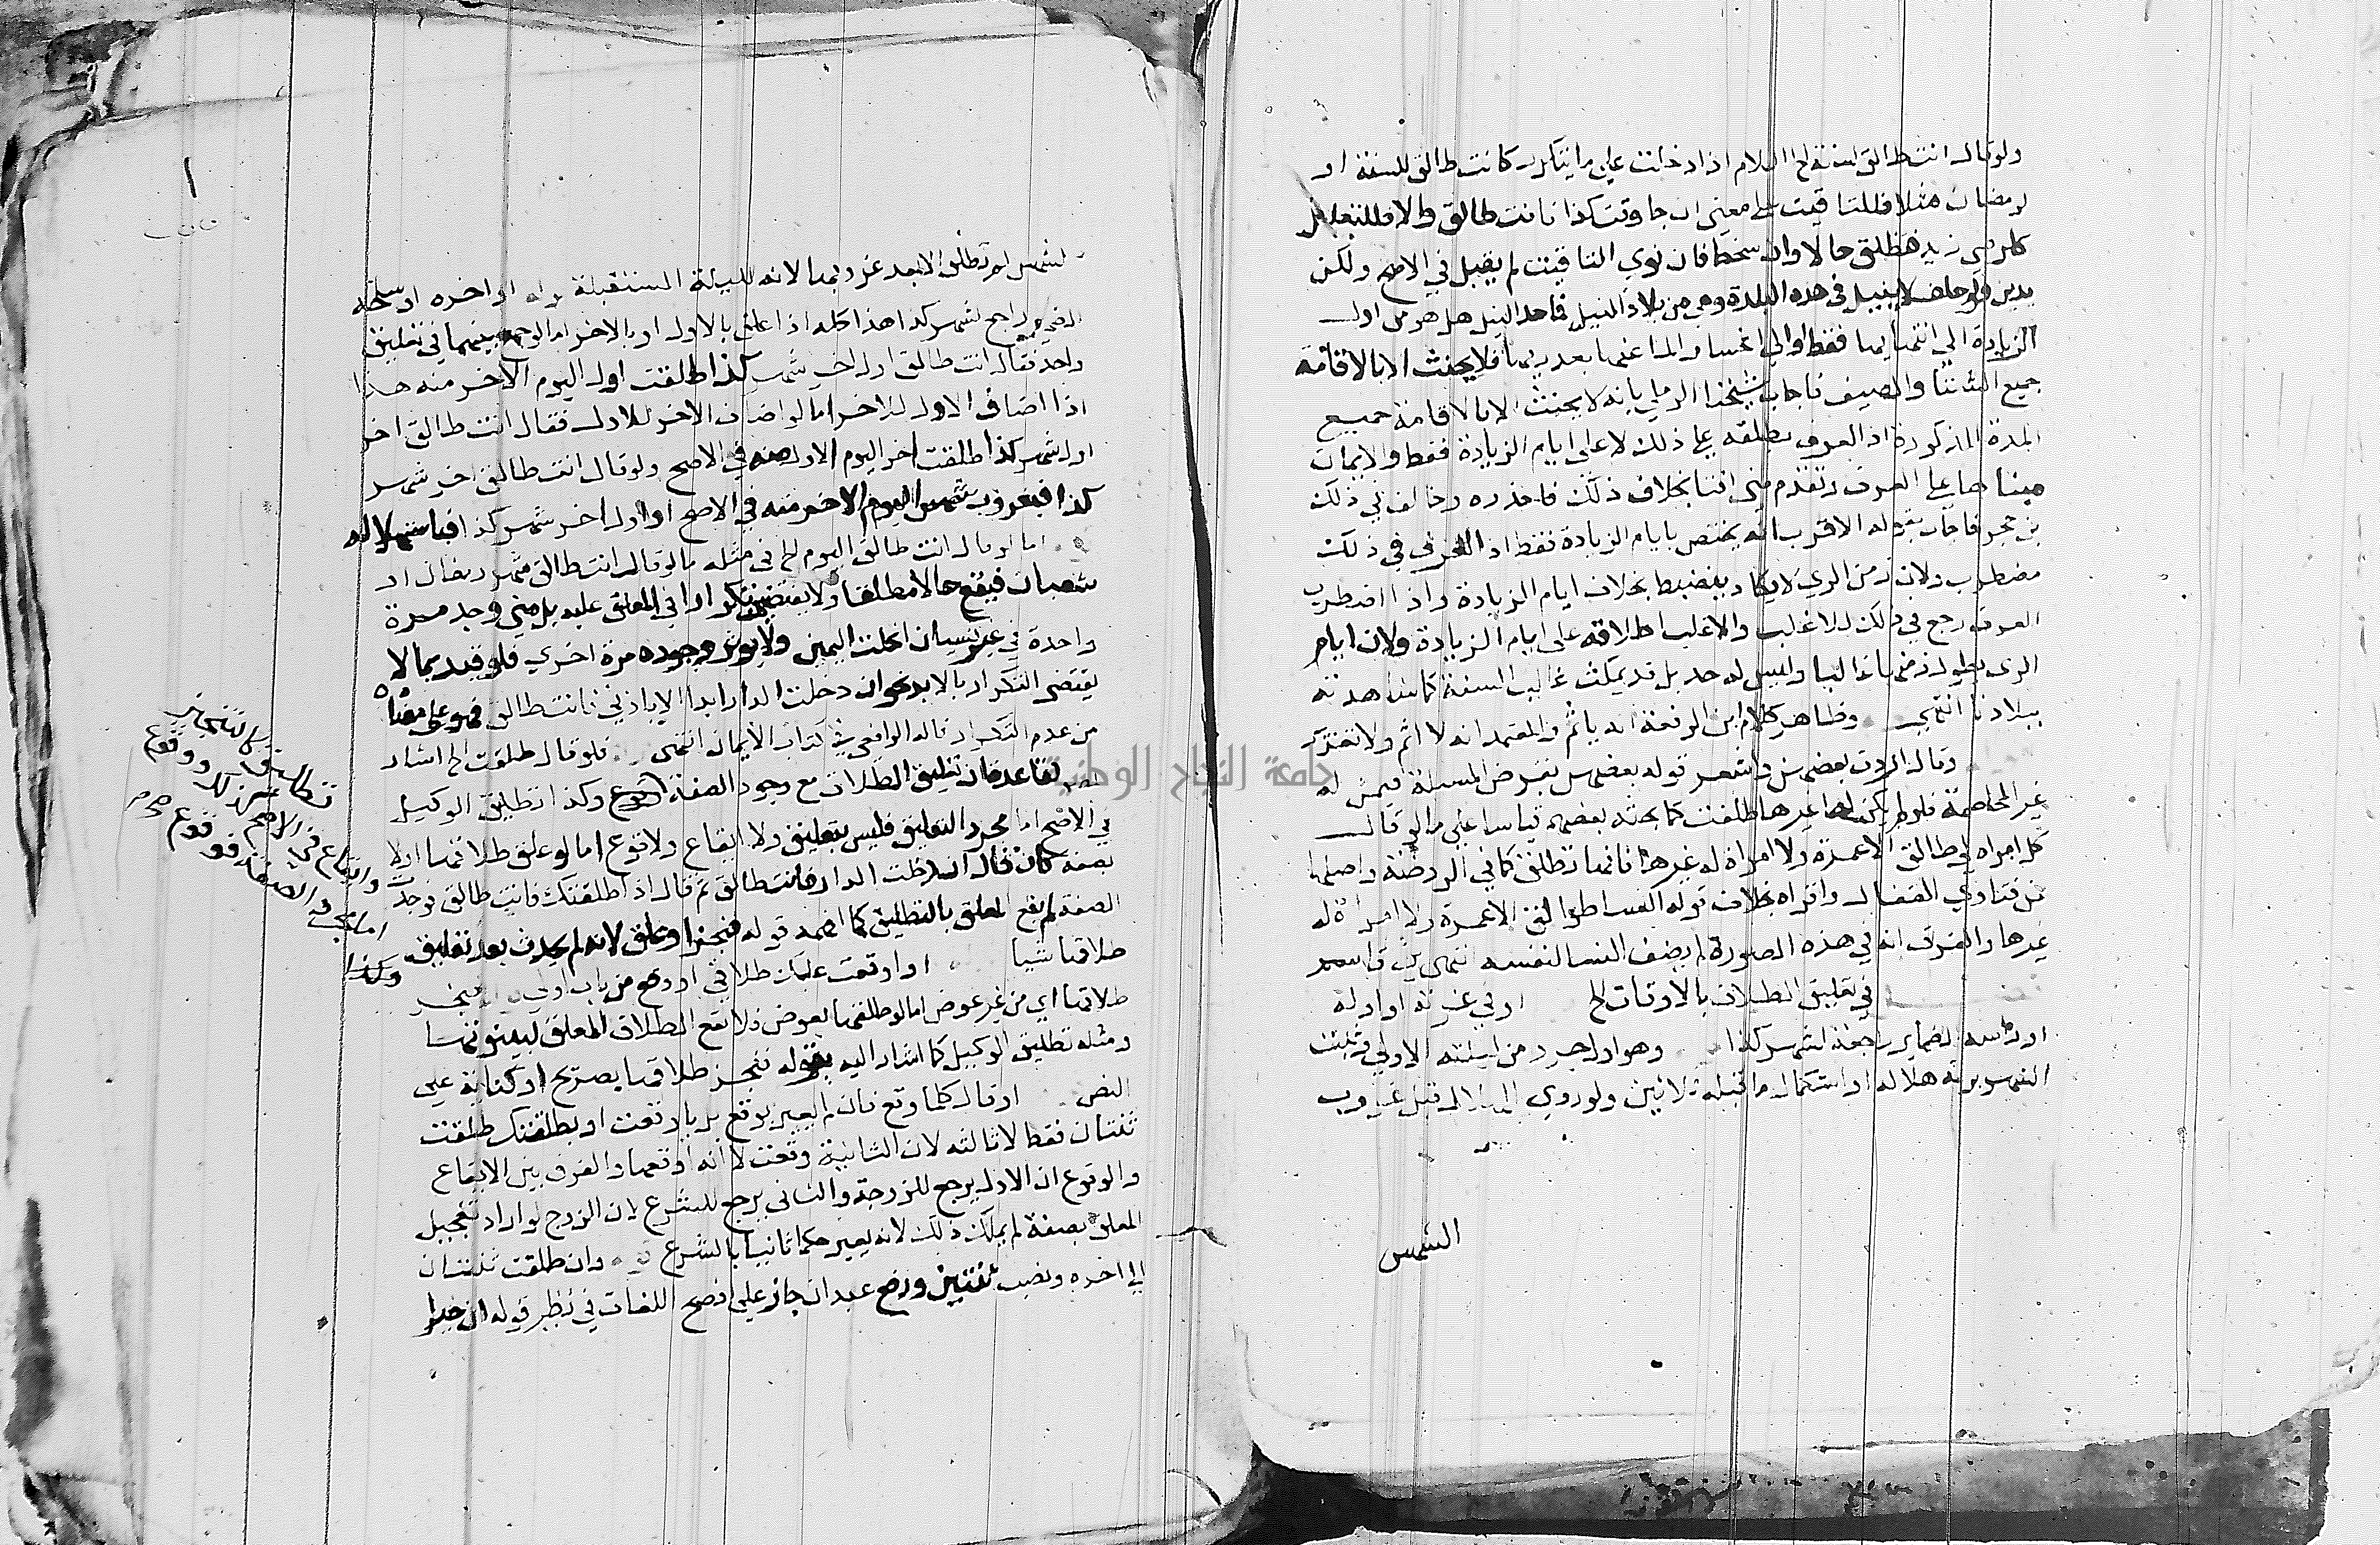 ولو قال انت طالق لسنة الخ اللام اذا دخلت على ما يتكرر كانت طالق للسنة او
لرمضان مثلا فللتاقيت على معنى ان جا وقت كذا فانت طالق والا فللتعليل
كلرضى زيد فتطلق حالا وان سخط فان نوى التاقيت لم يقبل في الاصح ولكن
يدين ولو حلف لا ينيل في هذه البلدة وهي من بلاد النيل فاحد النيل هل هو من اول
الزيادة الى انتهايها فقط او الى انحسار الما عنها بعد ريها فلا يحنث الا بالاقامة
جميع الشتا والصيف فاجاب شيخنا الرملي بانه لا يحنث الا بالاقامة جميع
المدة المذكورة اذ العرف يطلقه على ذلك لا على ايام الزيادة فقط والايمان
مبناها على العرف وتقدم مني افتا بخلاف ذلك فاحذره وخالف في ذلك
بن حجر فاجاب بقوله الاقرب انه يختص بايام الزيادة فقط اذ العرف في ذلك
مضطرب ولان زمن الري لا يكاد ينضبط بخلاف ايام الزيادة واذا اضطرب
العرف رجع في ذلك للاغلب والاغلب اطلاقه على ايام الزيادة ولان ايام
الري يطول زمنها غالبا وليس له حد بل قد يمكث غالب السنة كما شاهدته
ببلادنا انتهى وظاهر كلام ابن الرفعة انه ياثم والمعتمد انه لا اثم ولا تعزير
وقال اردت بعضهن واشعر قوله بعضهن بفرض المسئلة فيمن له
غير المخاصمة فلو لم يكن له غيرها طلقت كما بحثه بعضهم قياسا على ما لو قال
كل امراة لي طالق الا عمرة ولا امراة له غيرها فانها تطلق كما في الروضة واصلها
عن فتاوي القفال واقراه بخلاف قوله النسا طوالق الا عمرة ولا امراة له
غيرها والفرق انه في هذه الصورة لم يضف النسا لنفسه انتهى
في تعليق الطلاق بالاوقات الخ او في غرته او اوله
او راسه الضماير راجعة لشهر كذا وهو اول جزء من ليلته الاولى وثبت
الشهر برؤية هلاله او استكمال ما قبله ثلاثين ولو روي الهلال قبل غروب
الشمس
الشمس لم تطلق الا بعد غروبها لانه لليلة المستقبلة او اخره او سلخه
الضمير راجع لشهر كذا هذا كله اذا علق بالاول او بالاخر اما لو جمع بينهما في تعليق
واحد فقال انت طالق اول اخر شهر كذا طلقت اول اليوم الاخر منه هذا
اذا اضاف الاول للاخر اما لو اضاف الاخر للاول فقال انت طالق اخر
اول شهر كذا طلقت اخر اليوم الاول منه في الاصح ولو قال انت طالق اخر شهر
كذا فبغروب شمس اليوم الاخر منه في الاصح او اول اخر شهر كذا
اما لو قال انت طالق اليوم الخ في مثله ما لو قال انت طالق شهر رمضان او
شعبان فيقع حالا مطلقا ولا يقتضين تكرارا في المعلق عليه بل متى وجد مرة
واحدة في غير نسيان انحلت اليمين ولا يوثر وجوده مرة اخرى فلو قيد بما لا
يقتضى التكرار بالابد نحو ان دخلت الدار ابدا الا باذني فانت طالق فهو على معناه
من عدم التكرار قاله الرافعي في كتاب الايمان انتهى فلو قال طلقت الخ اشار
لقاعدة ان تعليق الطلاق مع وجود الصفة وكذا تطليق الوكيل
في الاصح اما مجرد التعليق فليس بتعليق ولا ايقاع ولا وقوع اما لو علق طلاقها اولا
بصفة كأن قال ان دخلت الدار فانت طالق ثم قال اذا طلقتك فانت طالق فوجدت
الصفة لم يقع المعلق بالتطليق كما افهمه قوله فنجز او علق لانه لم يحدث بعد تعليق
طلاقها شيا او اوقعت عليك طلاقي او وقع من باب اولى فنجز
طلاقها اي من غير عوض اما لو طلقها بعوض فلا يقع الطلاق المعلق لبينونتها
ومثله تطليق الوكيل كما اشار اليه بقوله فنجز طلاقها بصريح او كناية على
النص او قال كلما وقع فان لم يعبر بوقع بل باوقعت او بطلقتك طلقت
ثنتان فقط لا ثالثة لان الثانية وقعت لا انه اوقعها والفرق بين الايقاع
والوقوع ان الاول يرجع للزوجة والثاني يرجع للشرع لان الزوج لو اراد تعجيل
المعلق بصفة لم يملك ذلك لانه يغير حكما ثابتا بالشرع وان طلقت ثنتان
الى اخره ونصب ثنتين ورفع عبدان جاز على افصح اللغات في نظير قوله ان خيرا
تطليق
وايقاع في الاصح ووقوع
اما مجرد الصفة فوقوع
وكذا